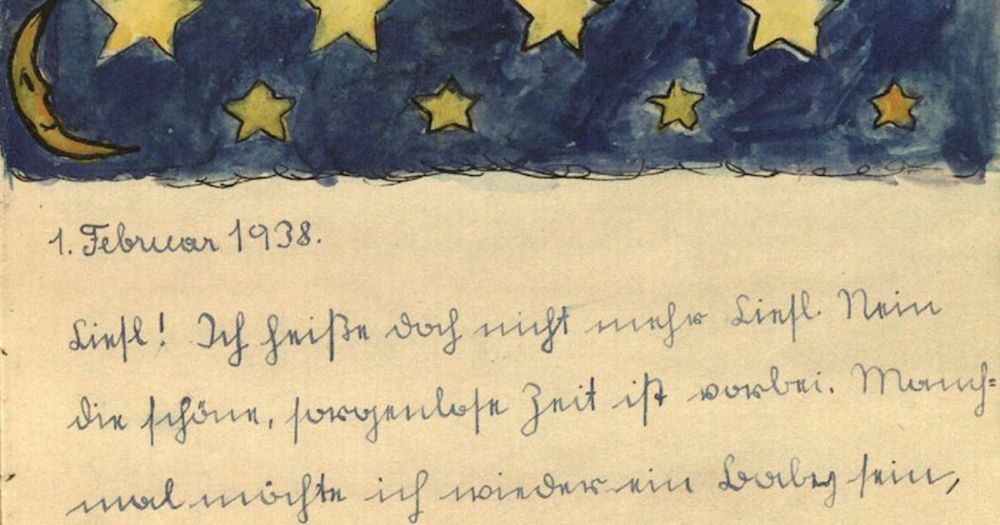 1. Februar 1938.
Liesl! Ich heiße doch nicht mehr Liesl. Nein
die schöne, sorgenlose Zeit ist vorbei. Manch=
mal möchte ich wieder ein Baby sein,